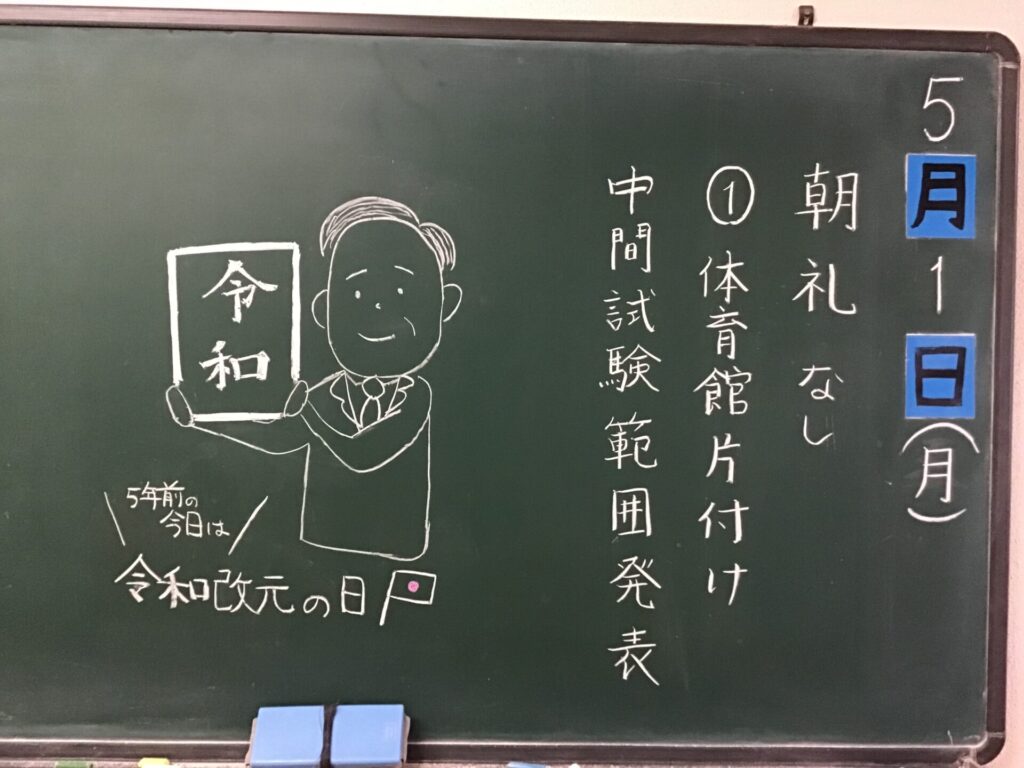 5月1日(月)
朝礼なし
①体育館片付け
中間試験範囲発表
令和
5年前の
今日は
令和改元の日